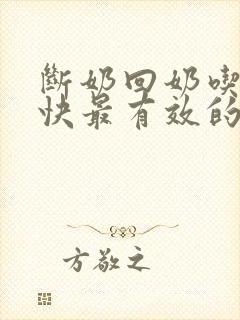 斷奶回奶喫
快最有效的
方敬之